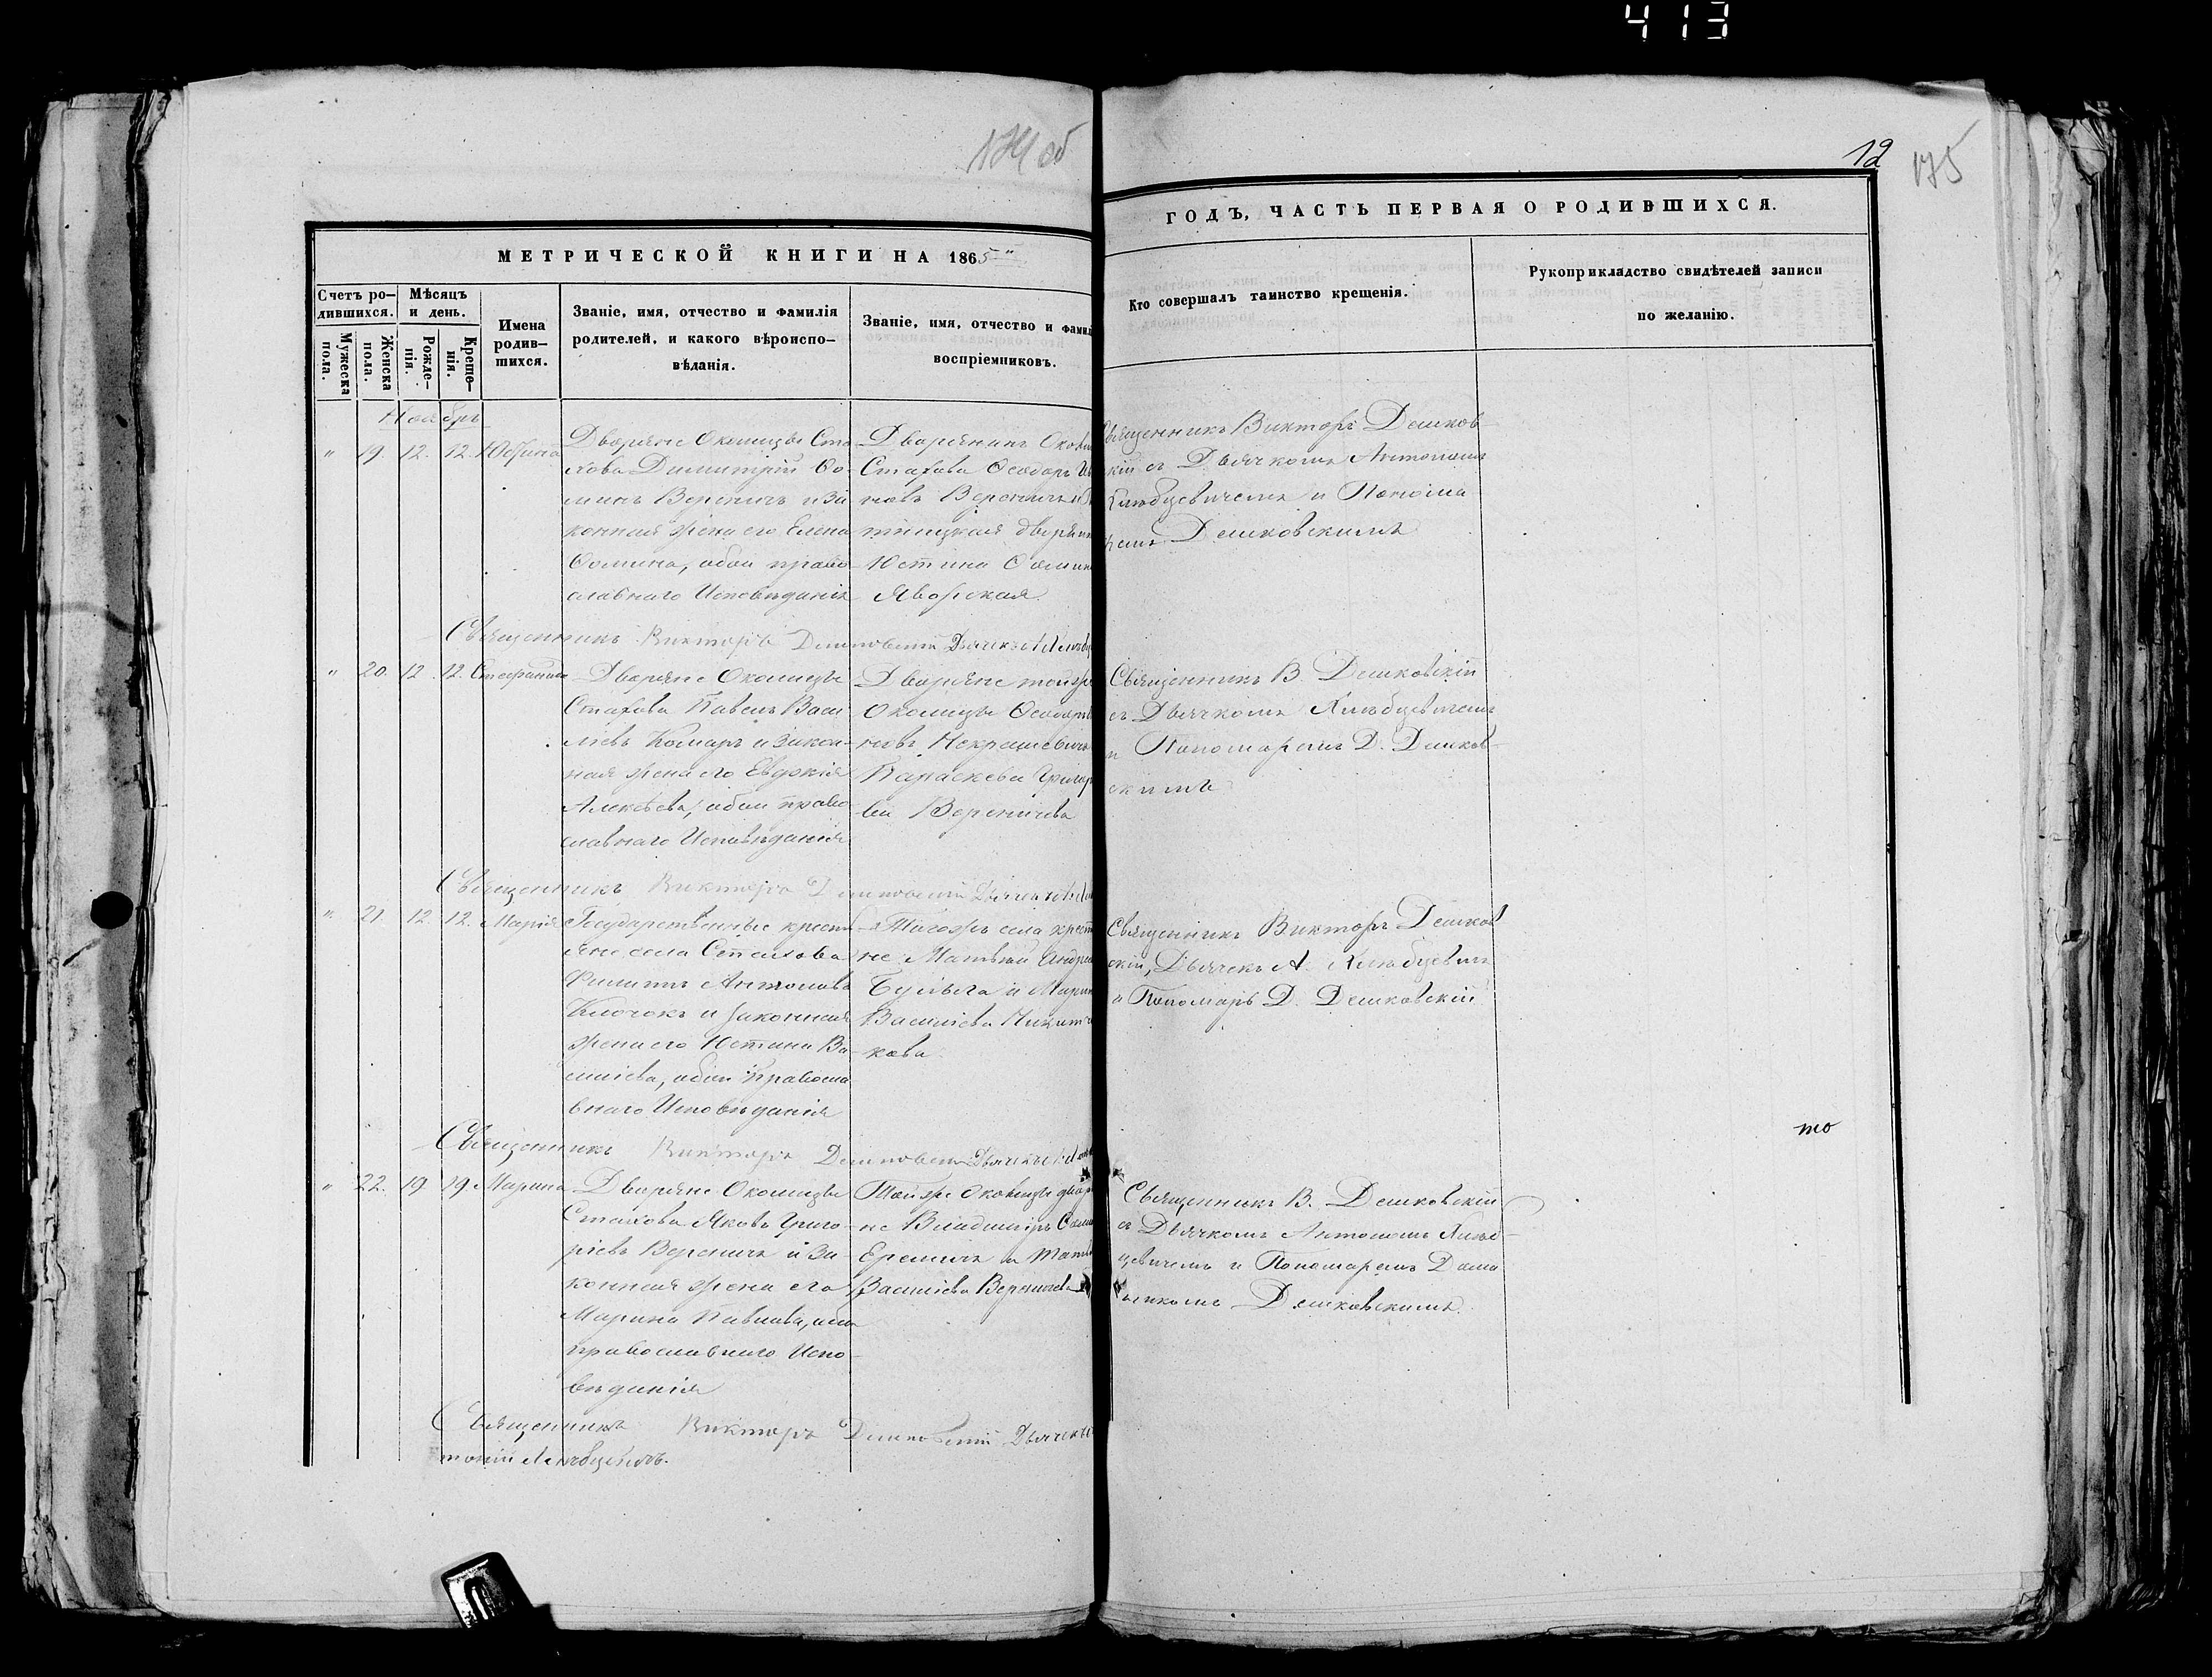 413
174 об
12
175
МЕТРИЧЕСКОЙ КНИГИ НА 1865
ГОДЪ, ЧАСТЬ ПЕРВАЯ О РОДИВШИХСЯ.
Счетъ ро-
дившихся.
Мужеска
пола.
Женска
пола.
Мѣсяцъ
и день.
Рожде-
нія.
Креще-
нія.
Имена
родив-
шихся.
Званіе, имя, отчество и фамилія
родителей, и какого вѣроиспо-
вѣданія.
Званіе, имя, отчество и фамил
воспріемниковъ.
Кто совершалъ таинство крещенія.
Рукоприкладство свидѣтелей записи
по желанію.
Ноябрь
" 19. 12. 12.
Дворяне Околицы Ста-
хова Димитрій Фо-
минъ Вереничъ и за
конная жена его Елена
Фомина, обои право-
славнаго Исповѣданія
Дворянинъ Окол
Стахова Ѳеодоръ Ив
новъ Вереничъ и
дворян
Юстина Фомин
Яворская
Священникъ Викторъ Дешков-
скій съ Дьячкомъ Антоніемъ
и Понома
ремъ Дешковскимъ
Священникъ Викторъ Дешковскій Дьячекъ
" 20. 12. 12. Стефанида
Дворяне Околицы
Стахова Павелъ Васи
ліевъ Комаръ и закон-
ная жена его Евдокія
Алексѣева, обои право-
славнаго Исповѣданія
Дворяне тойже
Околицы Ѳеодоръ
новъ Некрашевичъ
Параскева Григор
ва Вереничева
Священникъ В. Дешковскій
съ Дьячкомъ
и Пономаремъ Д. Дешков-
скимъ
Священникъ Викторъ Дешковскій Дьячекъ
" 21. 12. 12. Марія
Государственные крест
яне села Стахова
Филиппъ Антоновъ
Клочокъ и законная
жена его Юстина Ва-
силіева, обои Правосла
внаго Исповѣданія
Тогожъ села крест
не Матвѣй Андре
и Марин
Василіева Никит
кова
Священникъ Викторъ Дешков
скій, Дьячекъ А.
и Пономарь Д. Дешковскій
Священникъ Викторъ Дешковскій Дьячекъ
то
" 22. 19 19 Марина
Дворяне Околицы
Стахова Яковъ Григо-
ріевъ Вереничъ и за-
конная жена его
Марина Павлова, обои
православнаго Испо-
вѣданія
Тойже Околицы двор
не Владиміръ
Еремичъ и
Василіева Вереничева
Священникъ В. Дешковскій
съ Дьячкомъ Антоніемъ
цевичемъ и Пономаремъ
Дешковскимъ.
Священникъ Викторъ Дешковскій Дьячекъ
тоній